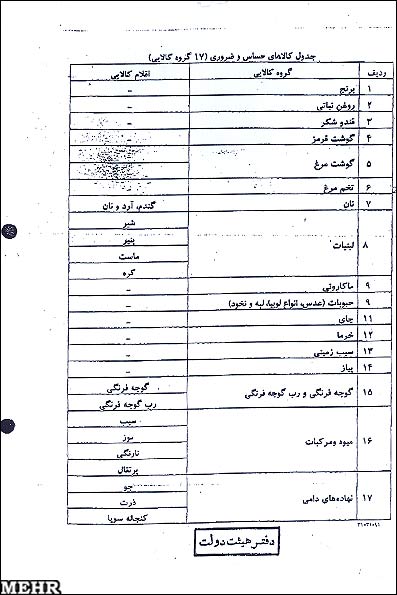 جدول کالاهای حساس و ضروری (۱۷ گروه کالایی)
ردیف گروه کالایی اقلام کالایی
۱ برنج -
۲ روغن نباتی -
۳ قندو شکر -
۴ گوشت قرمز -
۵ گوشت مرغ -
۶ تخم مرغ -
۷ نان گندم، آرد و نان
۸ لبنیات
شیر
پنیر
ماست
کره
۹ ماکارونی -
۹ حبوبات (عدس، انواع لوبیا، لپه و نخود) -
۱۱ چای -
۱۲ خرما -
۱۳ سیب زمینی -
۱۴ پیاز -
۱۵ گوجه فرنگی و رب گوجه فرنگی
گوجه فرنگی
رب گوجه فرنگی
۱۶ میوه ومرکبات
سیب
موز
نارنگی
پرتقال
۱۷ نهاده‌های دامی
جو
ذرت
کنجاله سویا
دفتر هیئت دولت
MEHR